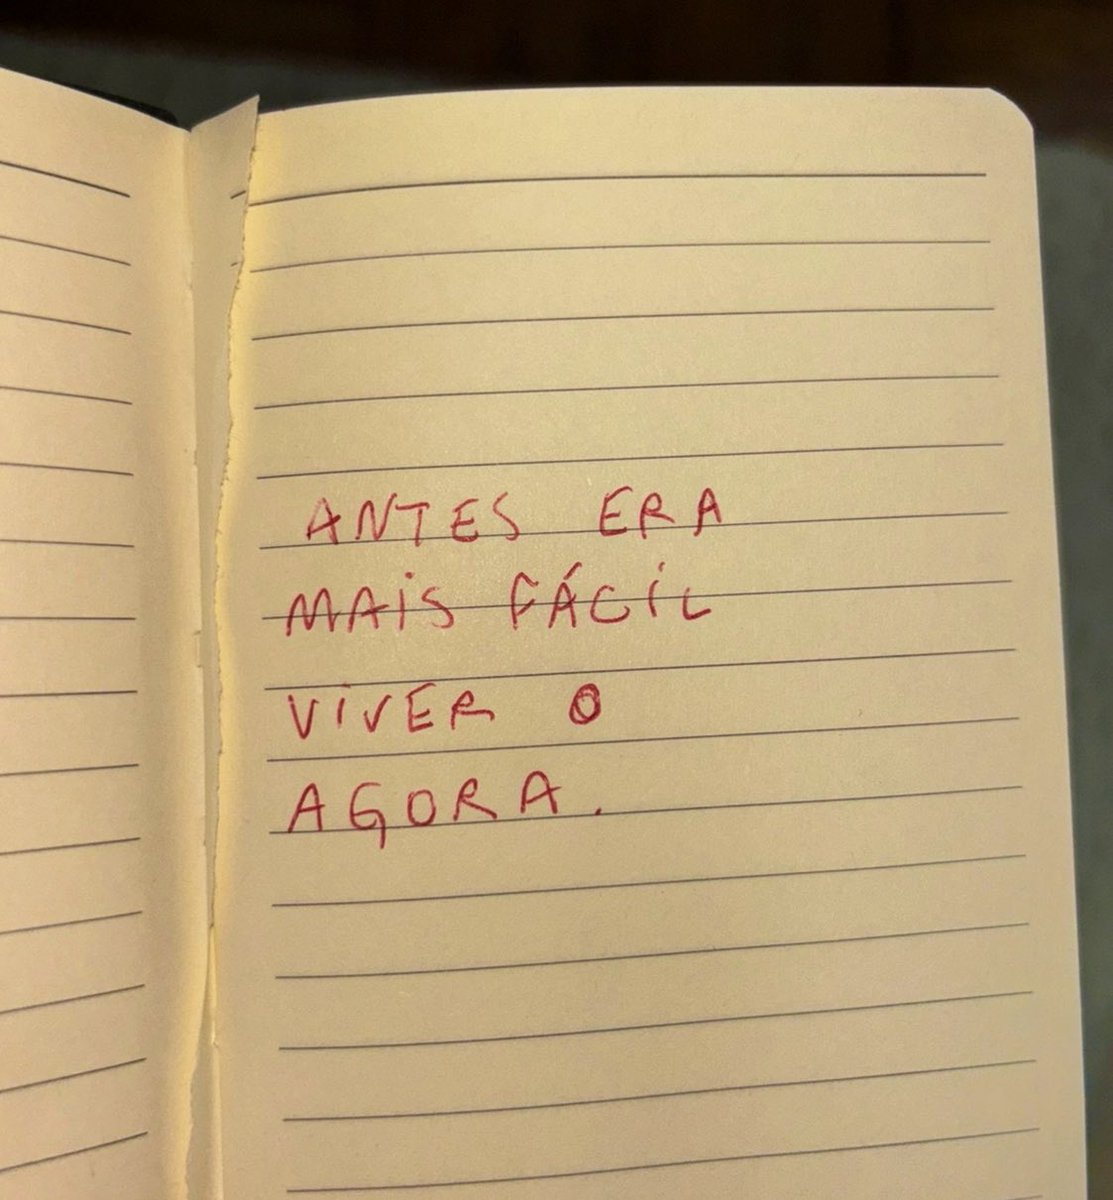 ANTES ERA
MAiS FÁCíL
ViVER O
AGORA.